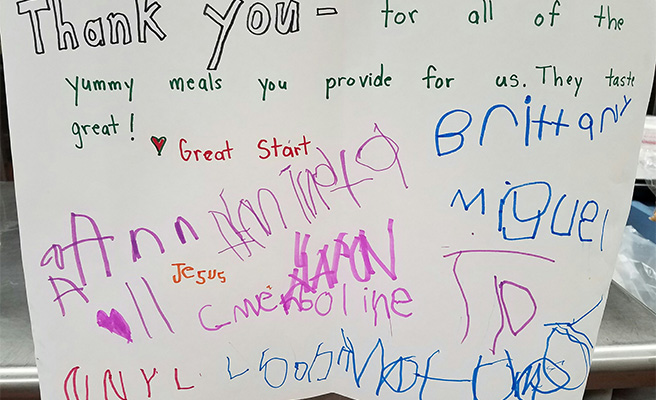 Thank You - for all of the
yummy meals you provide for us. They taste
great!
Great Start
Brittany
Miguel
Ann
Jesus
Aaron
Gwendoline